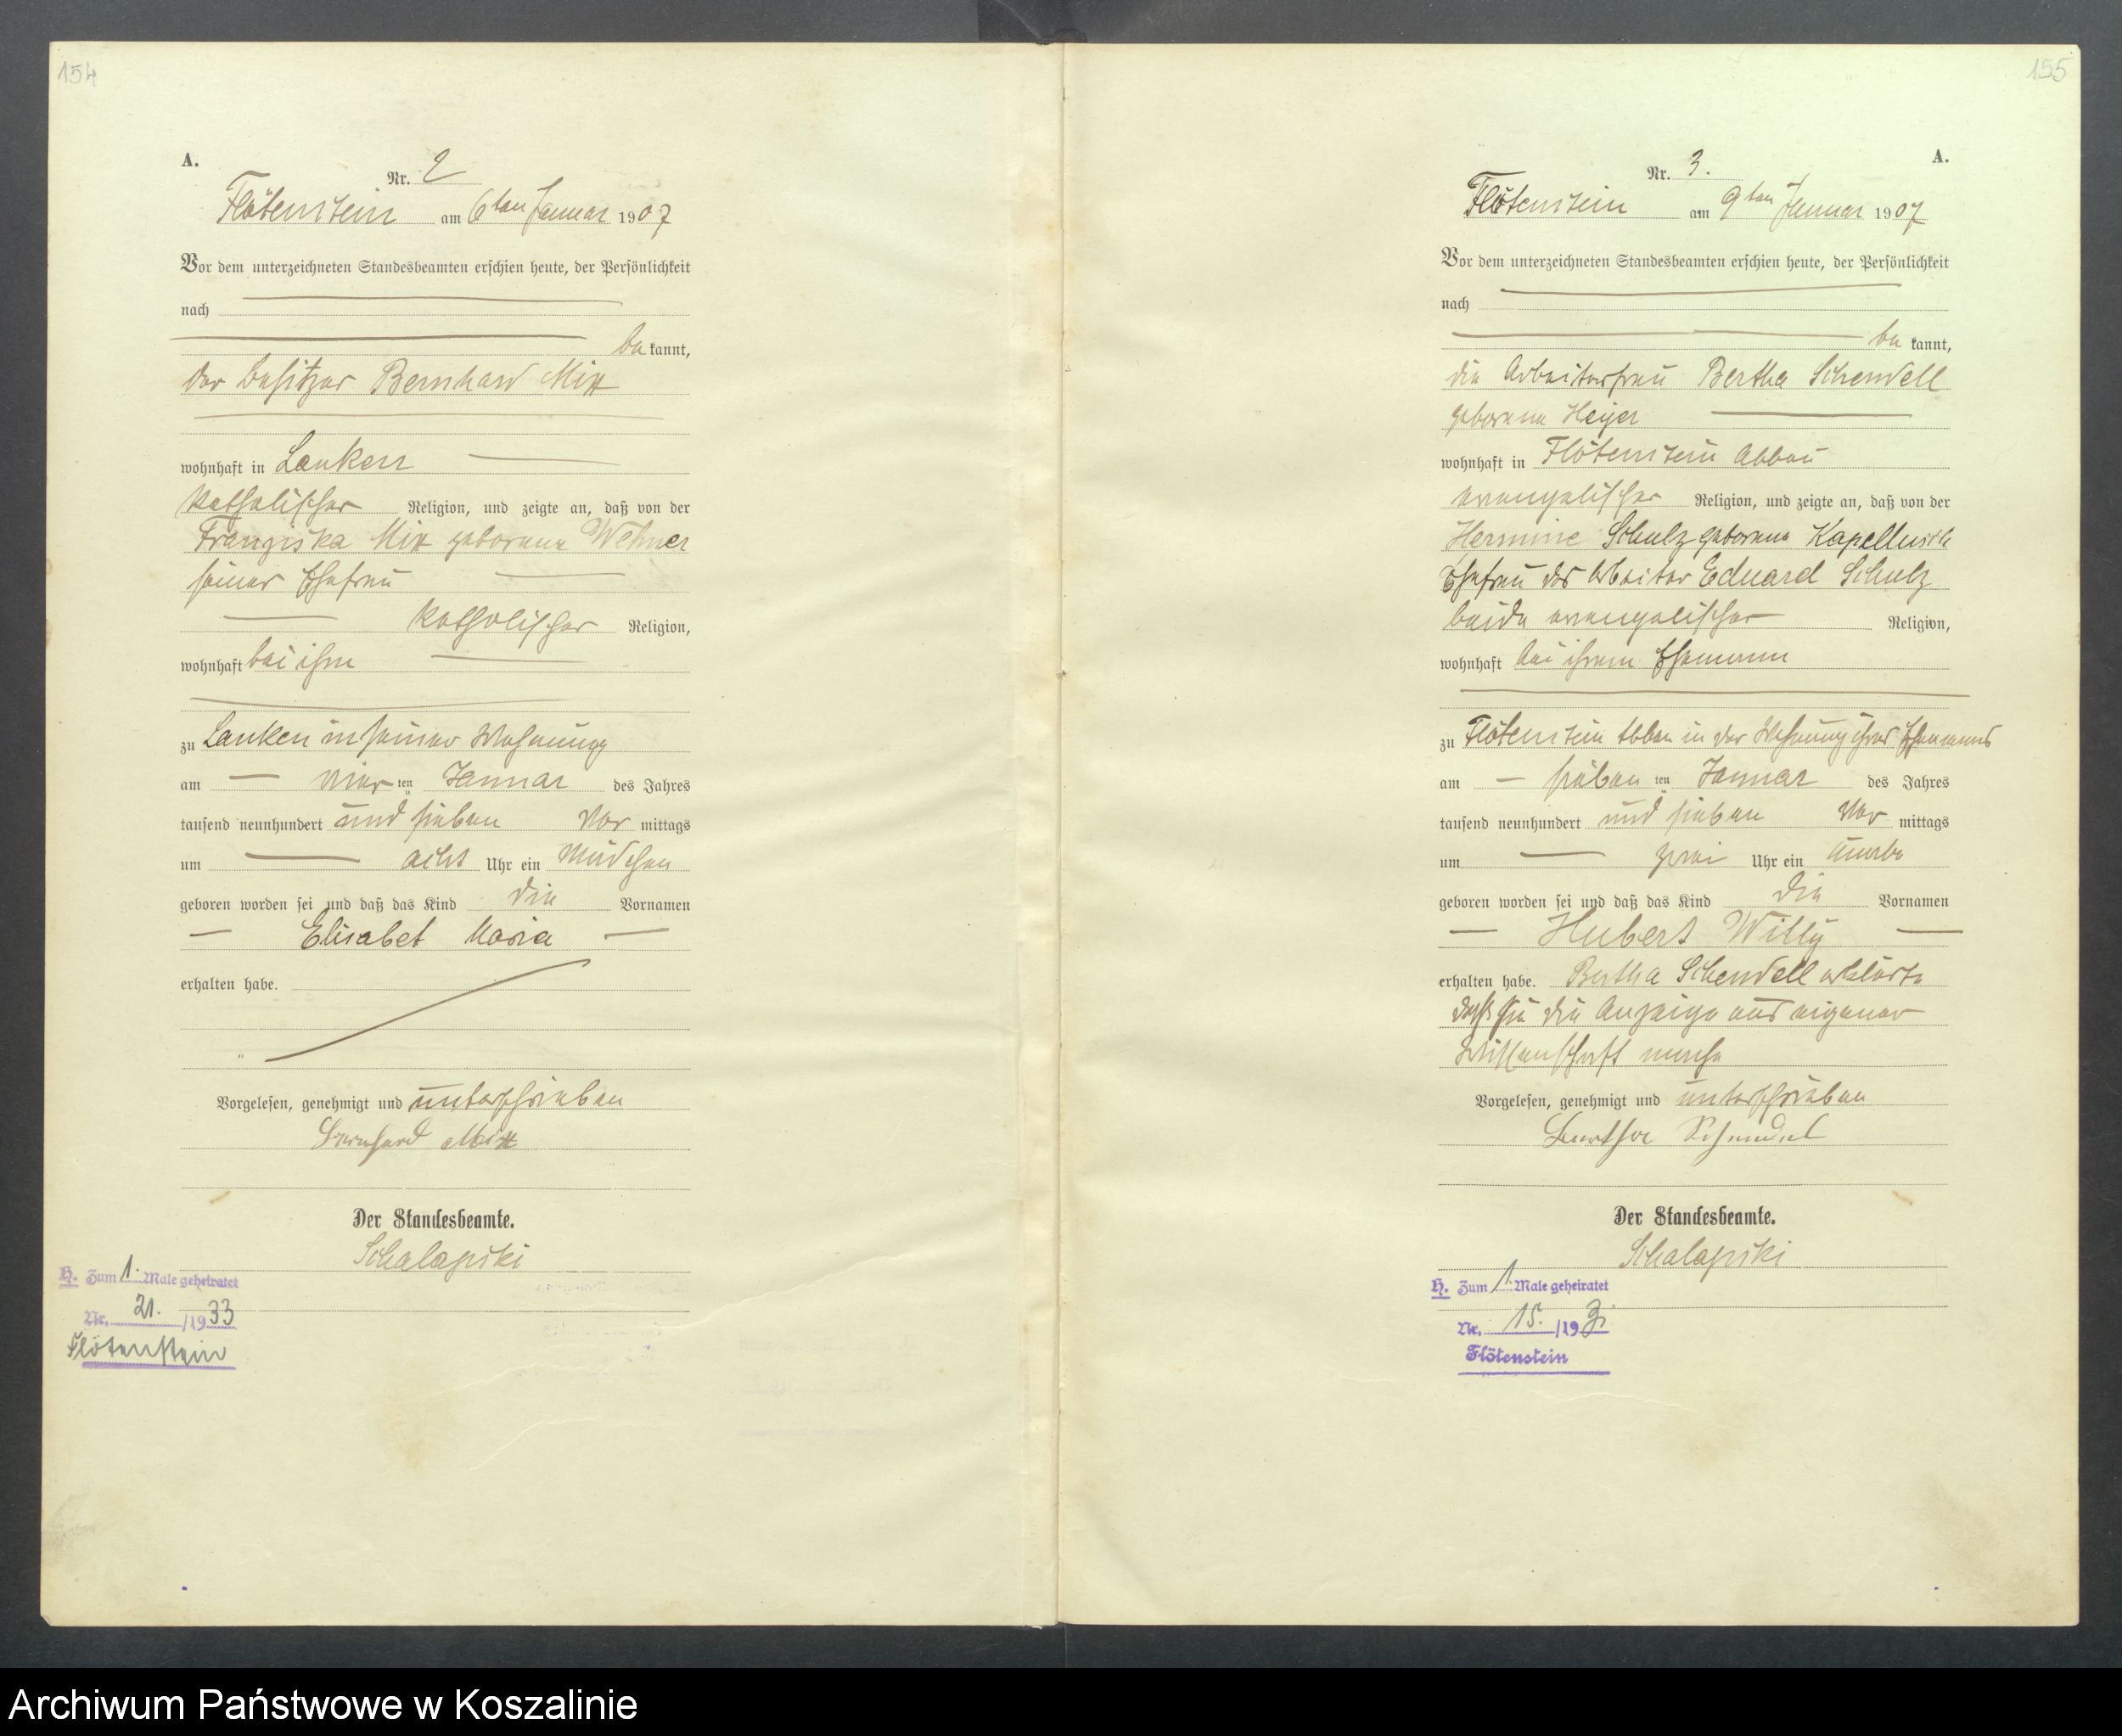 154
A.
Nr. 2
Flötenstein am 6ten Januar 1907
Vor dem unterzeichneten Standesbeamten erschien heute, der Persönlichkeit
nach
be kannt,
der Besitzer Bernhard Mix
wohnhaft in Lanken
katholischer Religion, und zeigte an, daß von der
Franziska Mix geborene Wehner
seiner Ehefrau
katholischer Religion,
wohnhaft bei ihm
zu Lanken in seiner Wohnung
am vier ten Januar des Jahres
tausend neunhundert und sieben Vor mittags
um acht Uhr ein Mädchen
geboren worden sei und daß das Kind die Vornamen
Elisabet Maria
erhalten habe.
Vorgelesen, genehmigt und unterschrieben
Bernhard Mix
Der Standesbeamte.
Schalapski
H. Zum 1. Male geheiratet
Nr. 21. /1933
Flötenstein
155
A.
Nr. 3.
Flötenstein am 9ten Januar 1907
Vor dem unterzeichneten Standesbeamten erschien heute, der Persönlichkeit
nach
be kannt,
die Arbeiterfrau Bertha Schendell
geborene Heyer
wohnhaft in Flötenstein Abbau
evangelischer Religion, und zeigte an, daß von der
Hermine Schulz geborene Kapellusch
Ehefrau des Arbeiter Eduard Schulz
beide evangelischer Religion,
wohnhaft bei ihrem Ehemann
zu Flötenstein Abbau in der Wohnung ihres Ehemanns
am sieben ten Januar des Jahres
tausend neunhundert und sieben Vor mittags
um zwei Uhr ein Knabe
geboren worden sei und daß das Kind die Vornamen
Hubert Willy
erhalten habe. Bertha Schendell erklärte
daß sie die Anzeige aus eigener
Wissenschaft mache
Vorgelesen, genehmigt und unterschrieben
Bertha Schendel
Der Standesbeamte.
Schalapski
H. Zum 1. Male geheiratet
Nr. 15. /19
Flötenstein
Archiwum Państwowe w Koszalinie